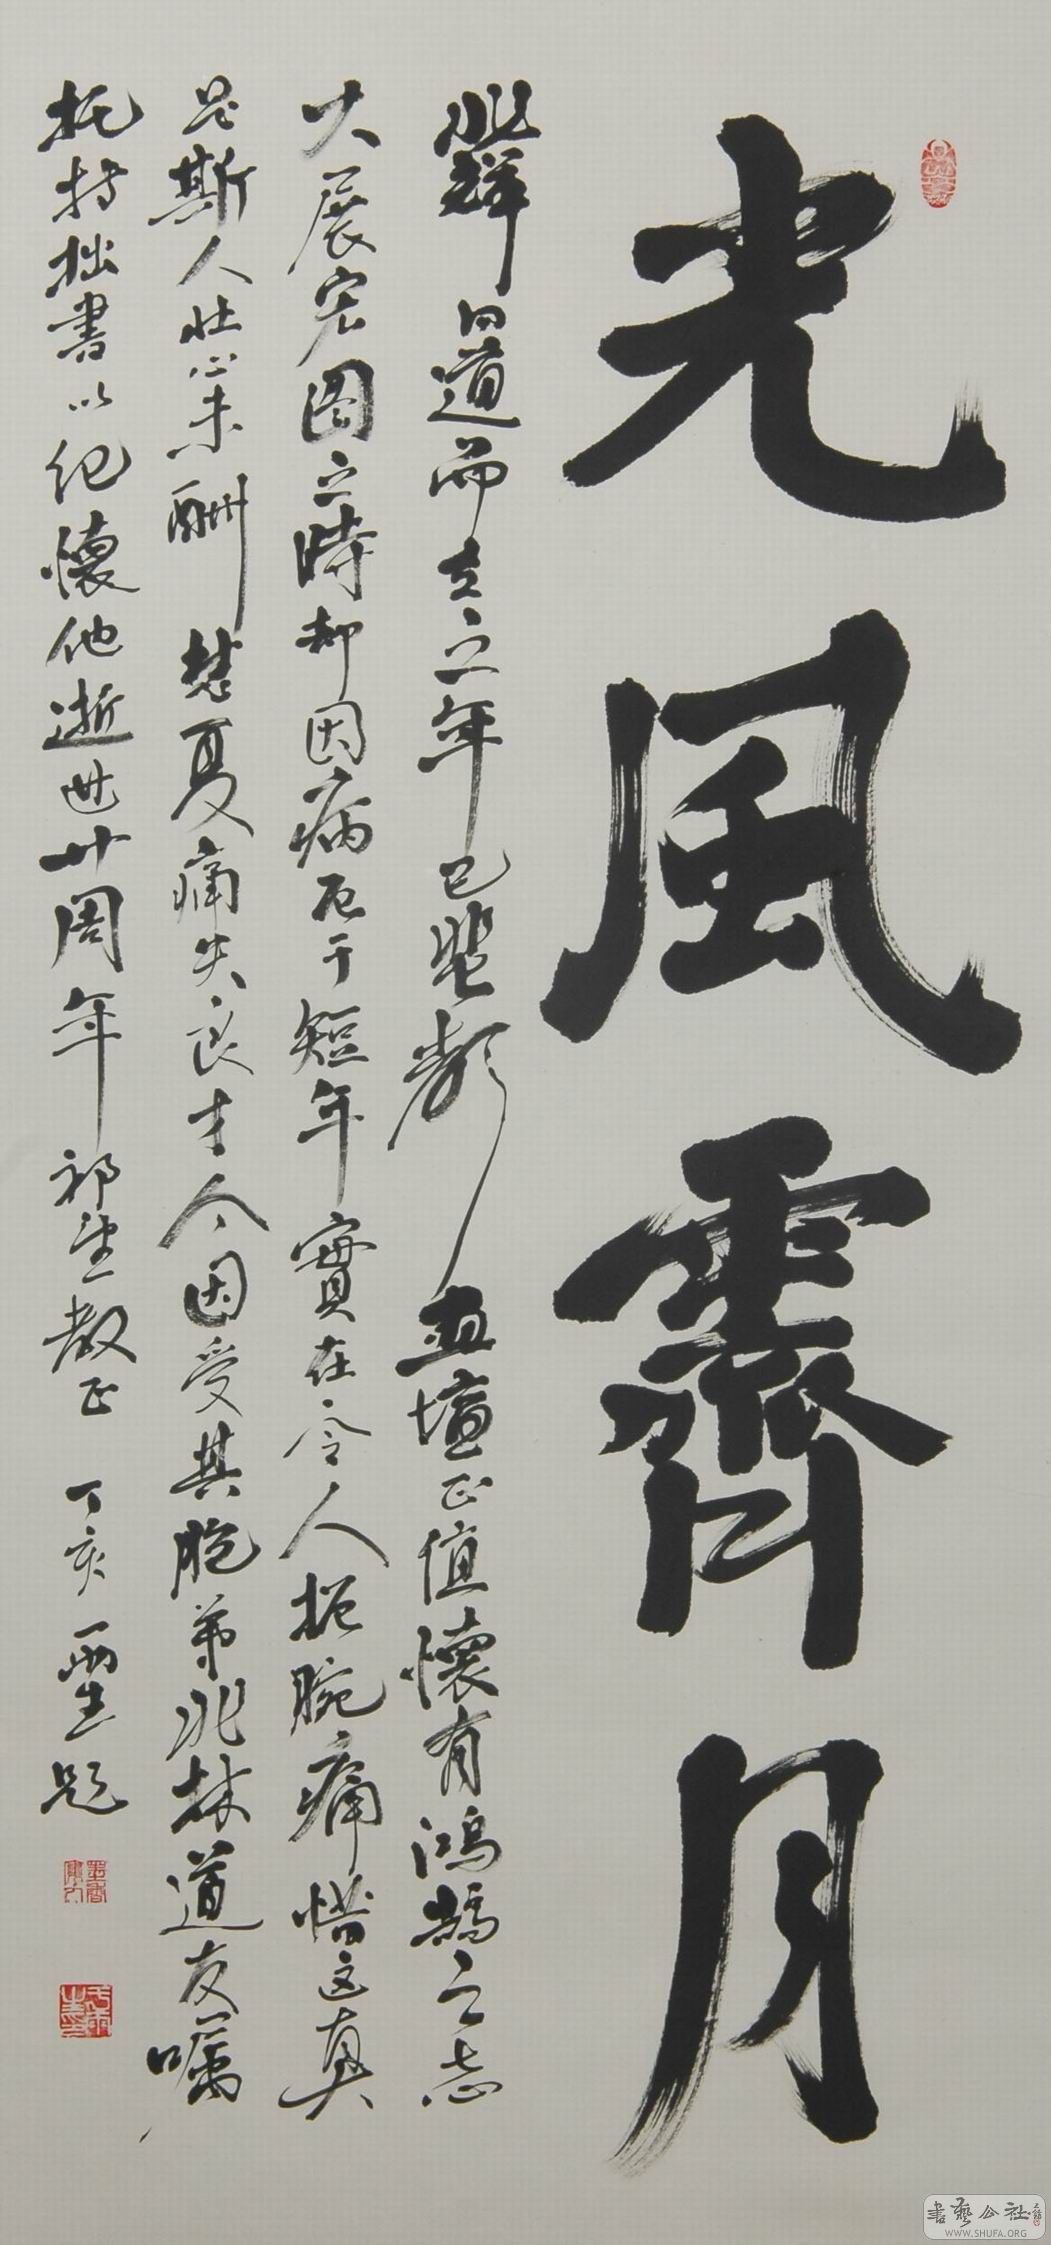 光風霽月
兆群同道而立之年已蜚聲畫壇正值懷有鴻鵠之志
大展宏图之時却因病厄于短年實在令人扼腕痛惜這真
是斯人壮心未酬楚夏痛失良才今因受其胞弟兆林道友嘱
托特拙書以紀懷他逝世廿周年祁望教正 丁亥 題
書藝公社
WWW.SHUFA.ORG